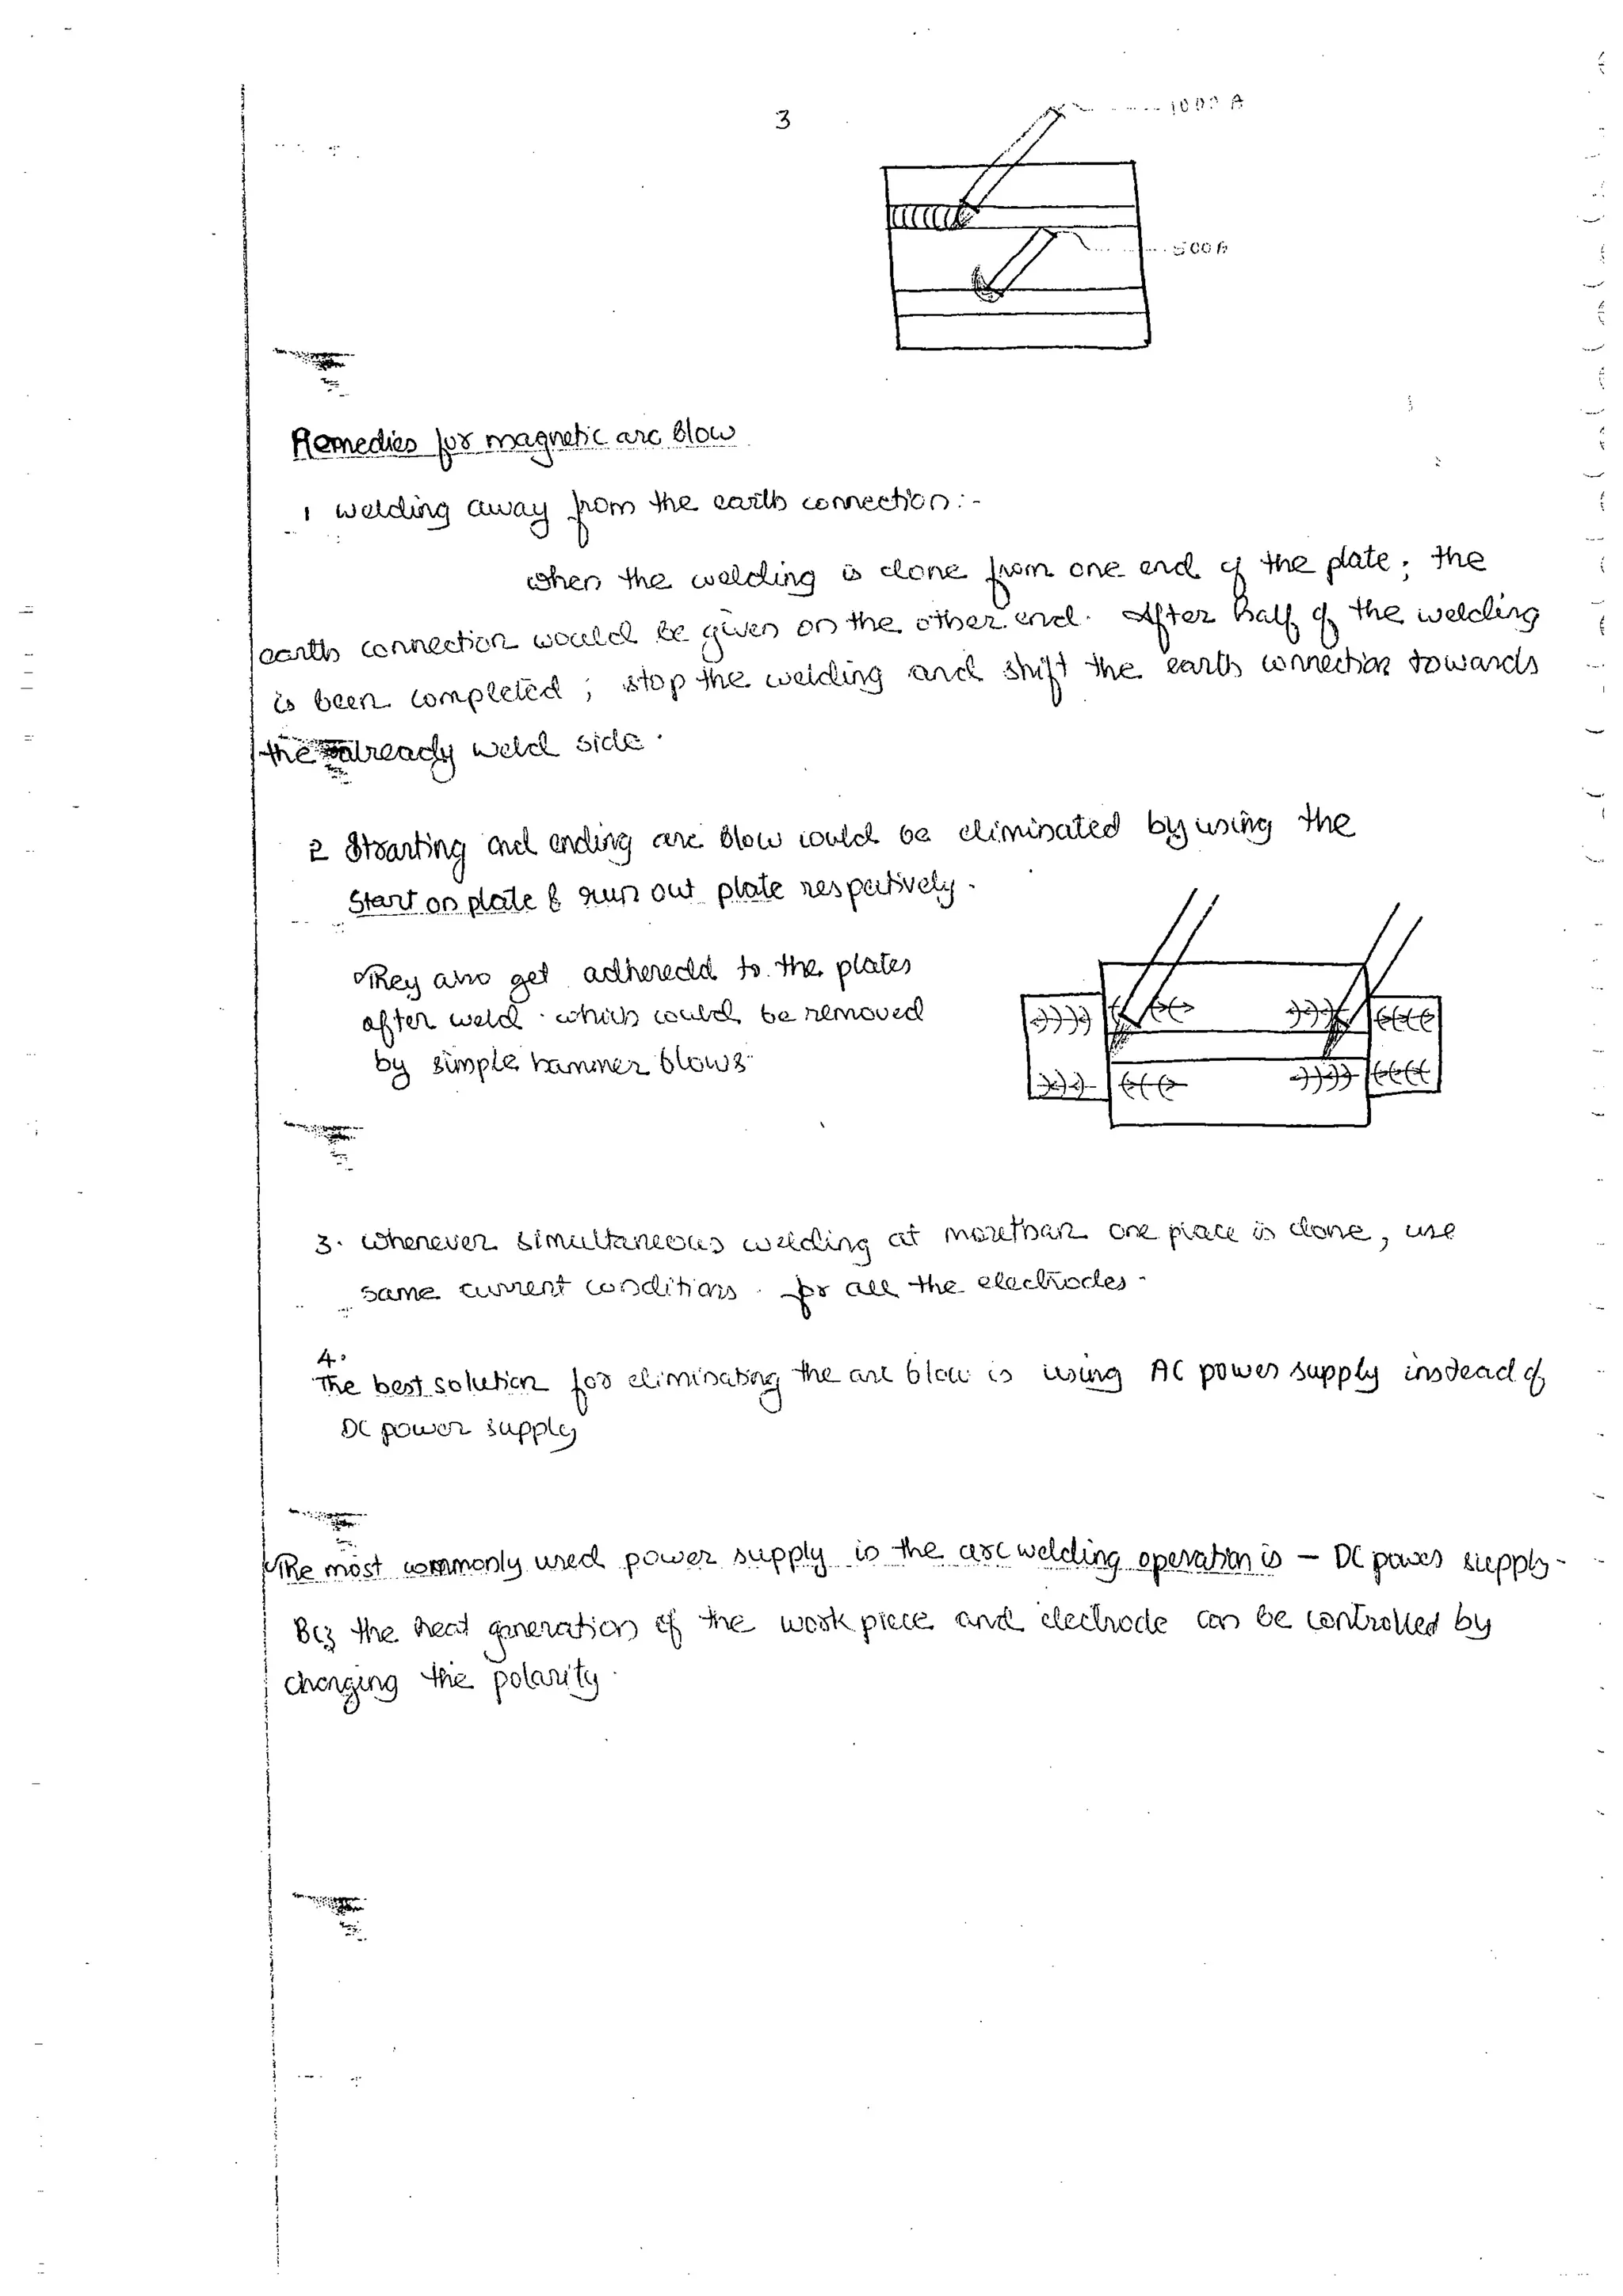 3
1000 A
500A
Remedies for magnetic arc blow
1 welding away from the earth connection:-
when the welding is done from one end of the plate; the
earth connection would be given on the other end. After half of the welding
is been completed; stop the welding and shift the earth connection towards
the already weld side.
2 Starting and ending arc blow could be eliminated by using the
Start on plate & run out plate respectively.
They also get adheredd to the plates
after weld. which could be removed
by simple hammer blows
3. whenever simultaneous welding at morethan one place is done, use
same current conditions for all the electrodes.
4.
The best solution for eliminating the arc blow is using AC power supply instead of
DC power supply
The most commonly used power supply is the arc welding operation is – DC power supply.
Bcz the heat generation of the work piece and electrode can be controlled by
changing the polarity.